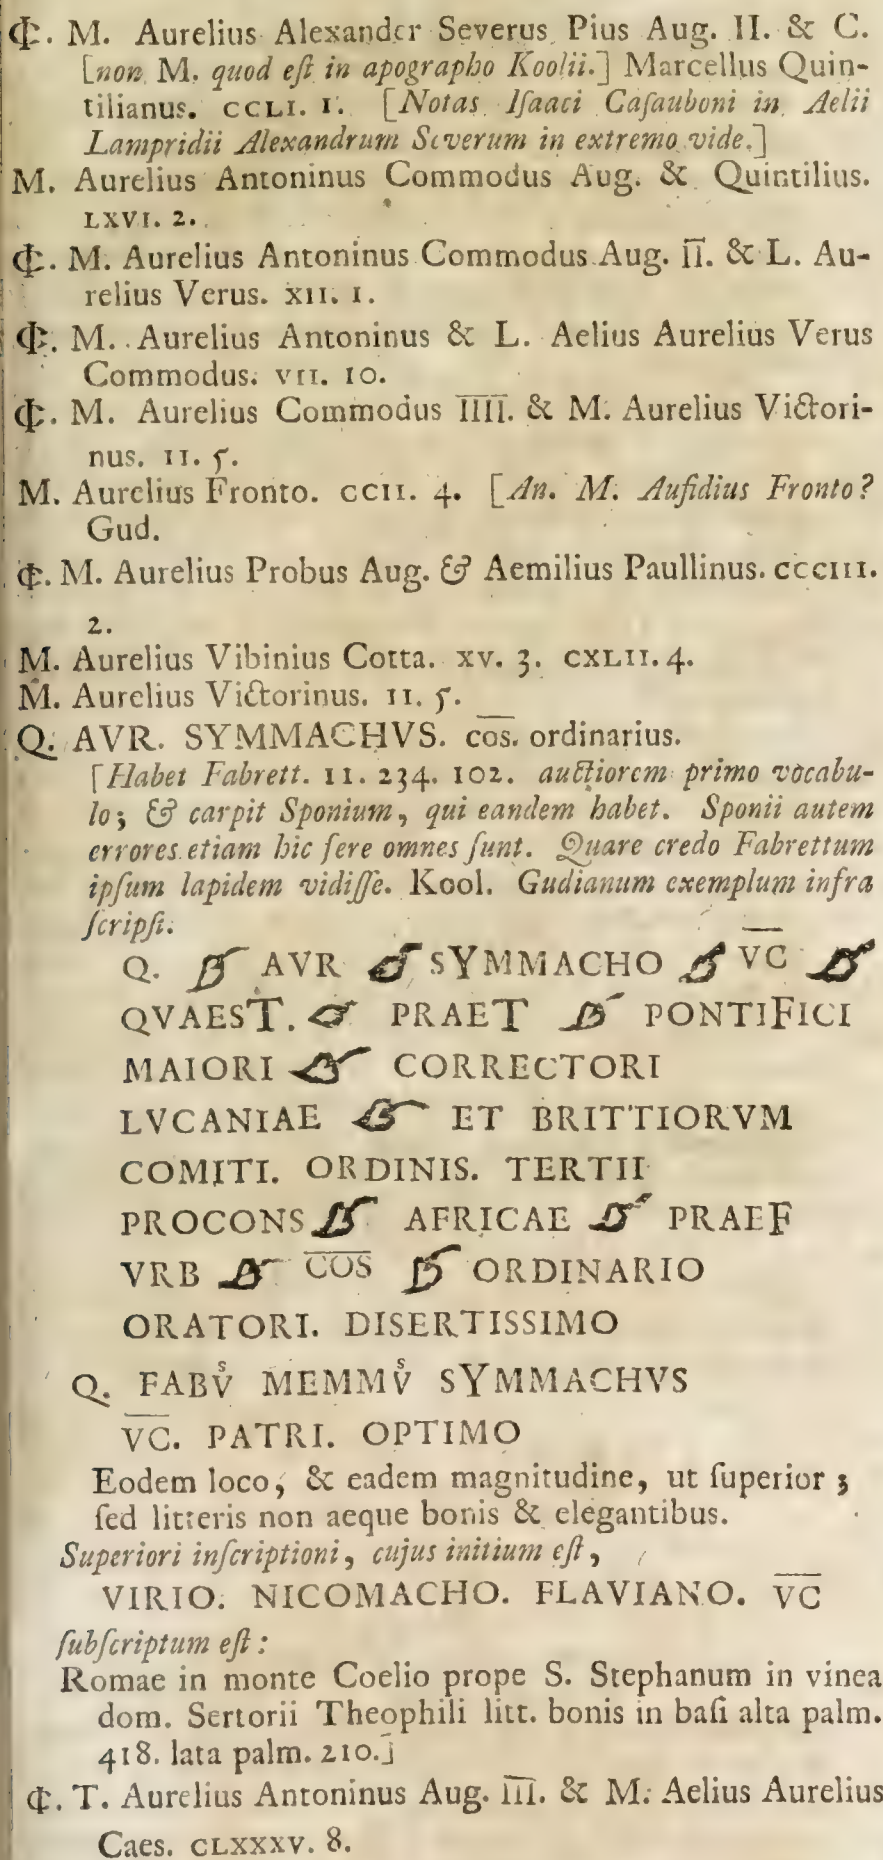 ₵. M. Aurelius Alexander Severus Pius Aug. II. & C.
[non M. quod eſt in apographo Koolii.] Marcellus Quin-
tilianus. CCLI. I. [Notas Iſaaci Caſauboni in Aelii
Lampridii Alexandrum Severum in extremo vide.]
M. Aurelius Antoninus Commodus Aug. & Quintilius.
LXVI. 2.
₵. M. Aurelius Antoninus Commodus Aug. I̅I̅. & L. Au-
relius Verus. XII. I.
₵. M. Aurelius Antoninus & L. Aelius Aurelius Verus
Commodus. VII. 10.
₵. M. Aurelius Commodus I̅I̅I̅I̅. & M. Aurelius Victori-
nus. II. 5.
M. Aurelius Fronto. CCII. 4. [An. M. Aufidius Fronto?
Gud.
₵. M. Aurelius Probus Aug. & Aemilius Paullinus. CCCIII.
2.
M. Aurelius Vibinius Cotta. XV. 3. CXLII. 4.
M. Aurelius Victorinus. II. 5.
Q. AVR. SYMMACHVS. c̅o̅s̅. ordinarius.
[Habet Fabrett. II. 234. 102. auctiorem primo vocabu-
lo; & carpit Sponium, qui eandem habet. Sponii autem
errores etiam hic ſere omnes ſunt. Quare credo Fabrettum
ipſum lapidem vidiſſe. Kool. Gudianum exemplum infra
ſcripſi.
Q. AVR SYMMACHO V̅C̅
QVAEST. PRAET PONTIFICI
MAIORI CORRECTORI
LVCANIAE ET BRITTIORVM
COMITI. ORDINIS. TERTII
PROCONS AFRICAE PRAEF
VRB C̅O̅S̅ ORDINARIO
ORATORI. DISERTISSIMO
Q. FABVˢ MEMMVˢ SYMMACHVS
V̅C̅. PATRI. OPTIMO
Eodem loco, & eadem magnitudine, ut ſuperior;
ſed litteris non aeque bonis & elegantibus.
Superiori inſcriptioni, cujus initium eſt,
VIRIO. NICOMACHO. FLAVIANO. V̅C̅
ſubſcriptum eſt:
Romae in monte Coelio prope S. Stephanum in vinea
dom. Sertorii Theophili litt. bonis in baſi alta palm.
418. lata palm. 210.]
₵. T. Aurelius Antoninus Aug. I̅I̅I̅. & M. Aelius Aurelius
Caes. CLXXXV. 8.